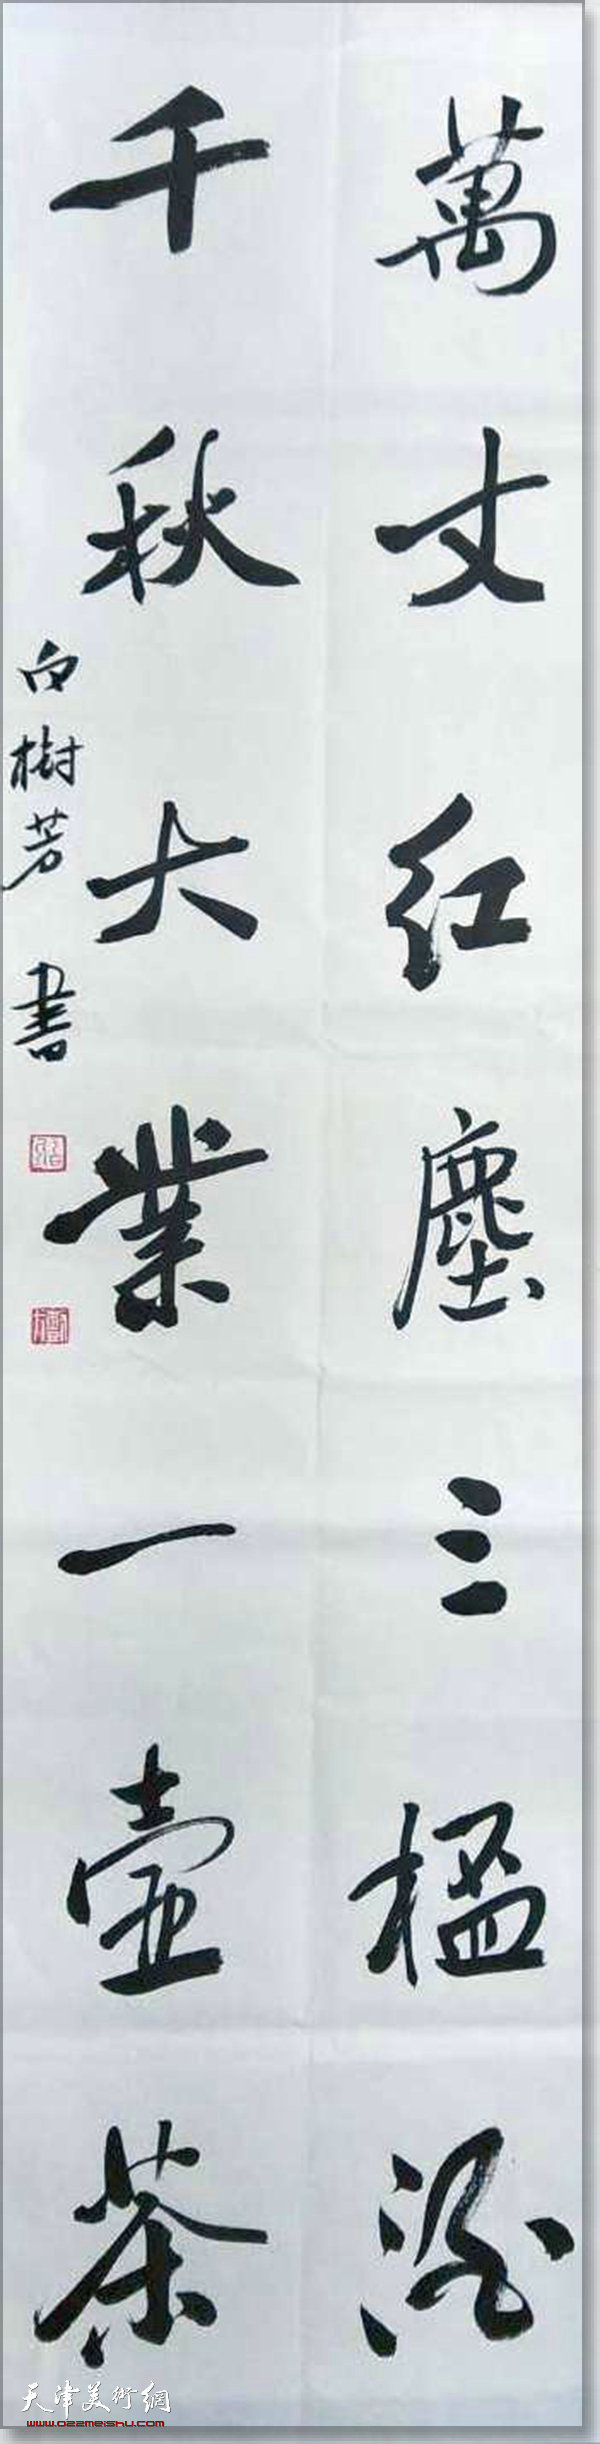 萬丈红塵三楹酒
千秋大業一壺茶
白樹芳書
天津美術網
www.022meishu.com